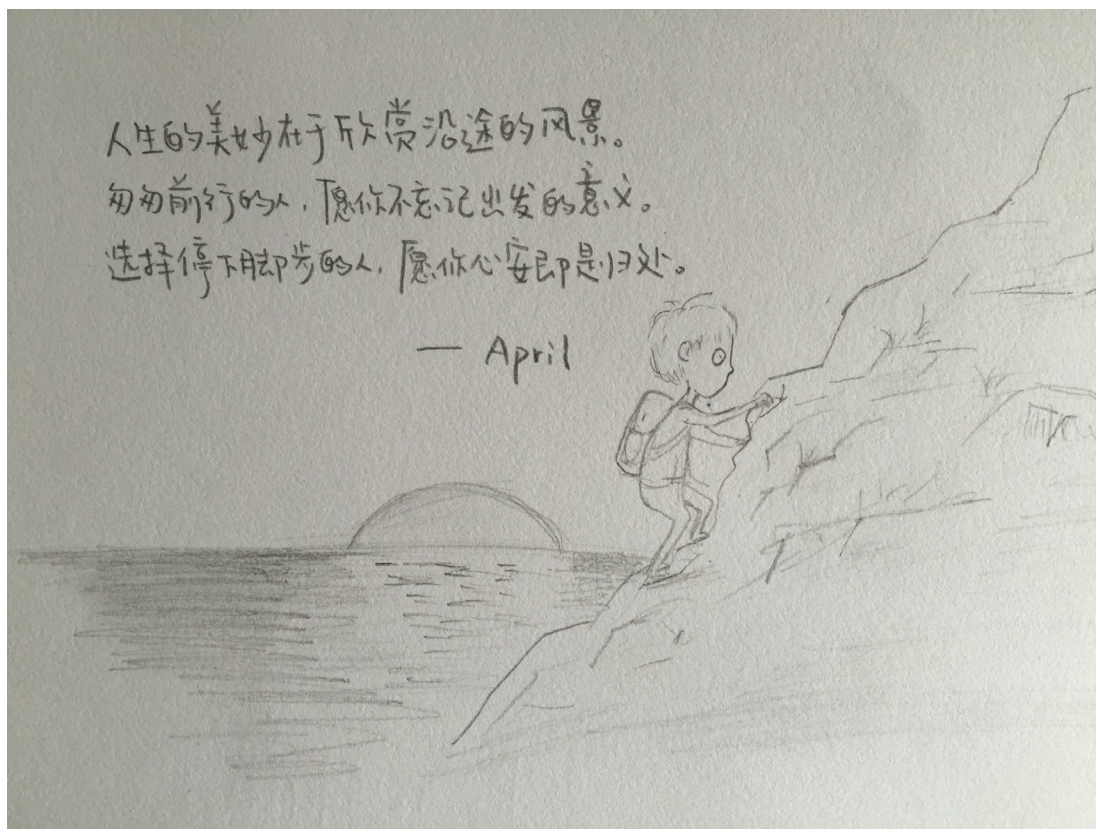 人生的美妙在于欣赏沿途的风景。
匆匆前行的人，愿你不忘记出发的意义。
选择停下脚步的人，愿你心安即是归处。
— April